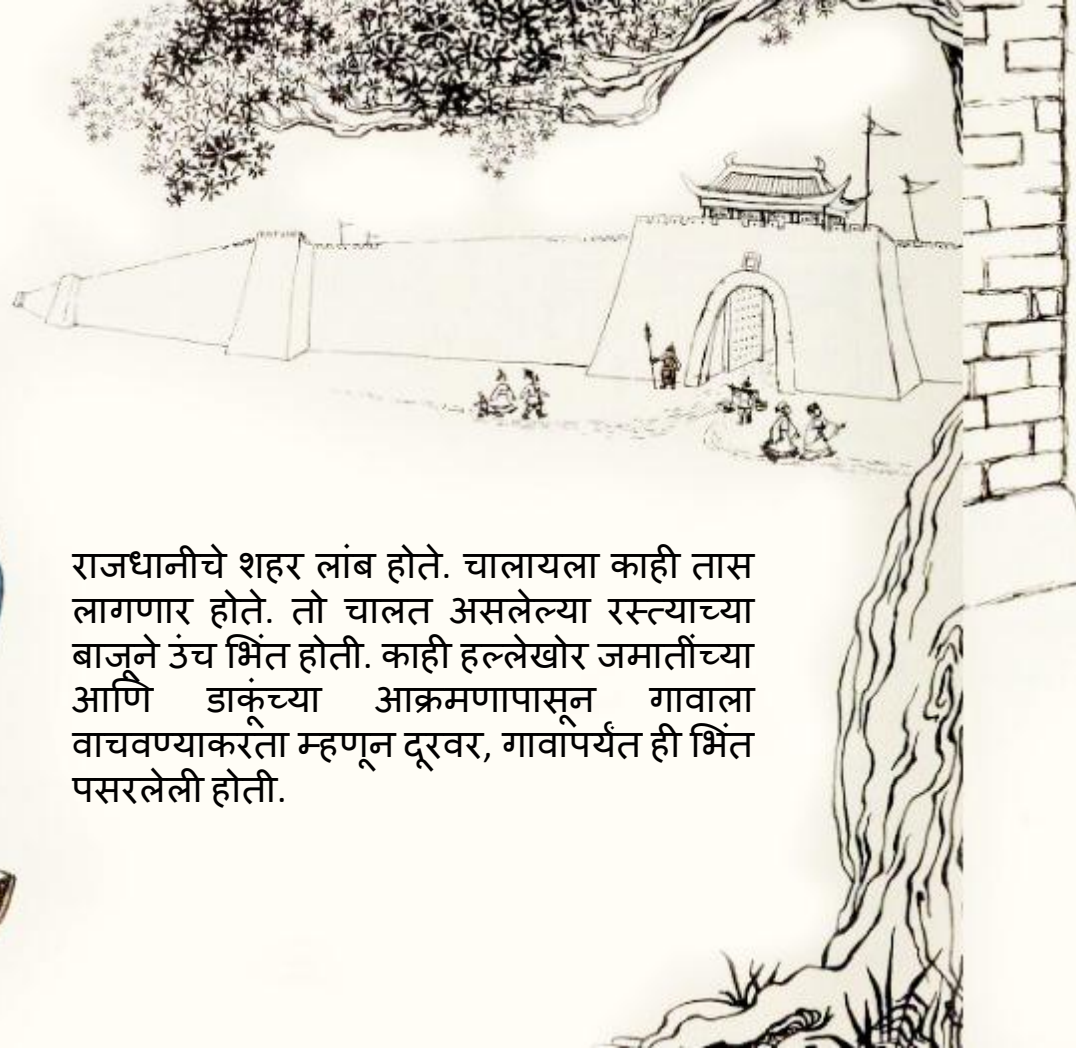 राजधानीचे शहर लांब होते. चालायला काही तास
लागणार होते. तो चालत असलेल्या रस्त्याच्या
बाजूने उंच भिंत होती. काही हल्लेखोर जमातींच्या
आणि डाकूंच्या आक्रमणापासून गावाला
वाचवण्याकरता म्हणून दूरवर, गावापर्यंत ही भिंत
पसरलेली होती.